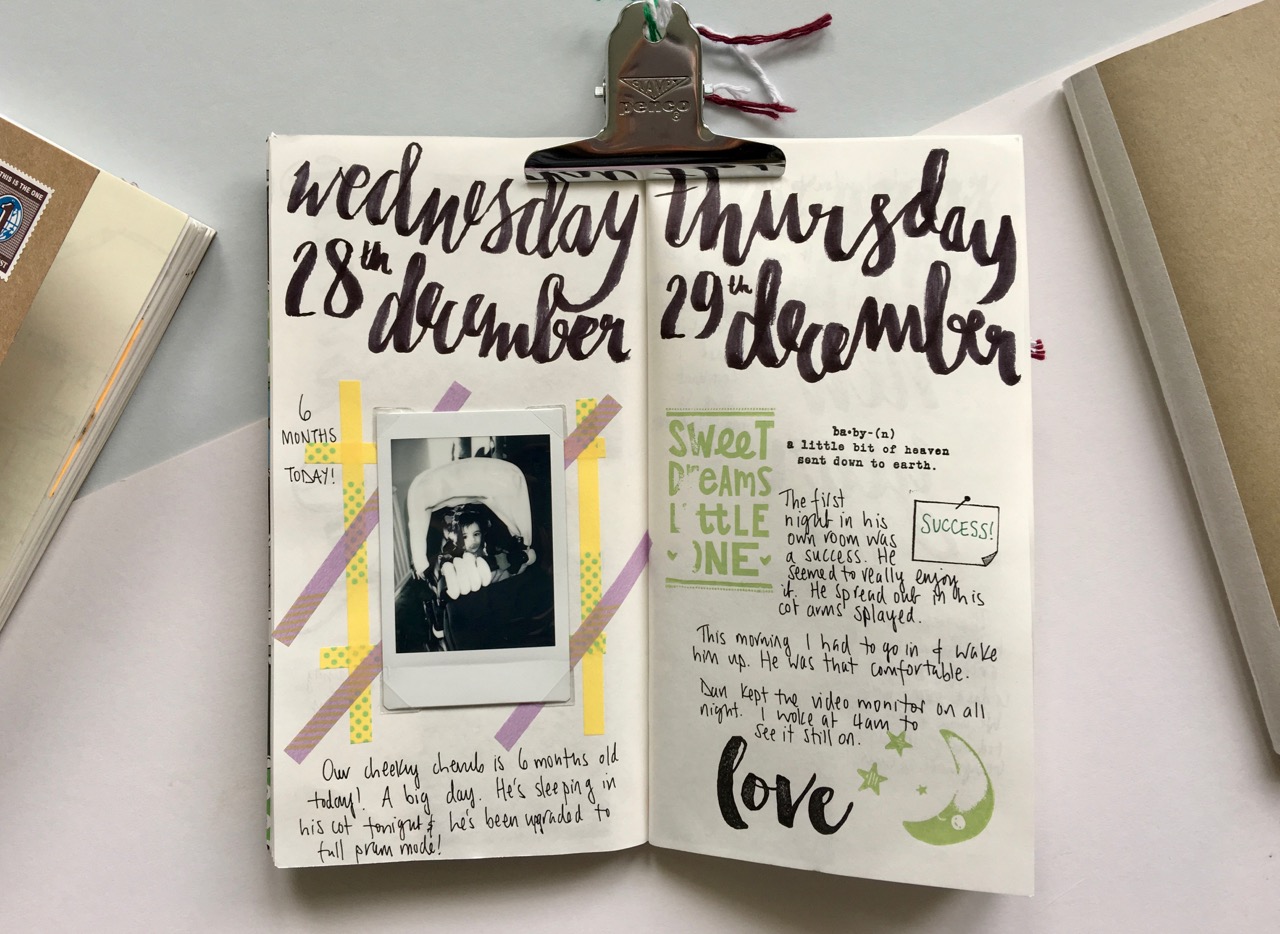 THIS IS THE ONE
1
penco
wednesday
28th
december
6
MONTHS
TODAY!
Our cheeky cherub is 6 months old
today! A big day. He's sleeping in
his cot tonight & he's been upgraded to
full pram mode!
thursday
29th
december
SWEET
DREAMS
LITTLE
ONE
ba•by-(n)
a little bit of heaven
sent down to earth.
The first
night in his
own room was
a success. He
seemed to really enjoy
it. He spread out in his
cot arms splayed.
SUCCESS!
This morning I had to go in & wake
him up. He was that comfortable.
Dan kept the video monitor on all
night. I woke at 4am to
see it still on.
love